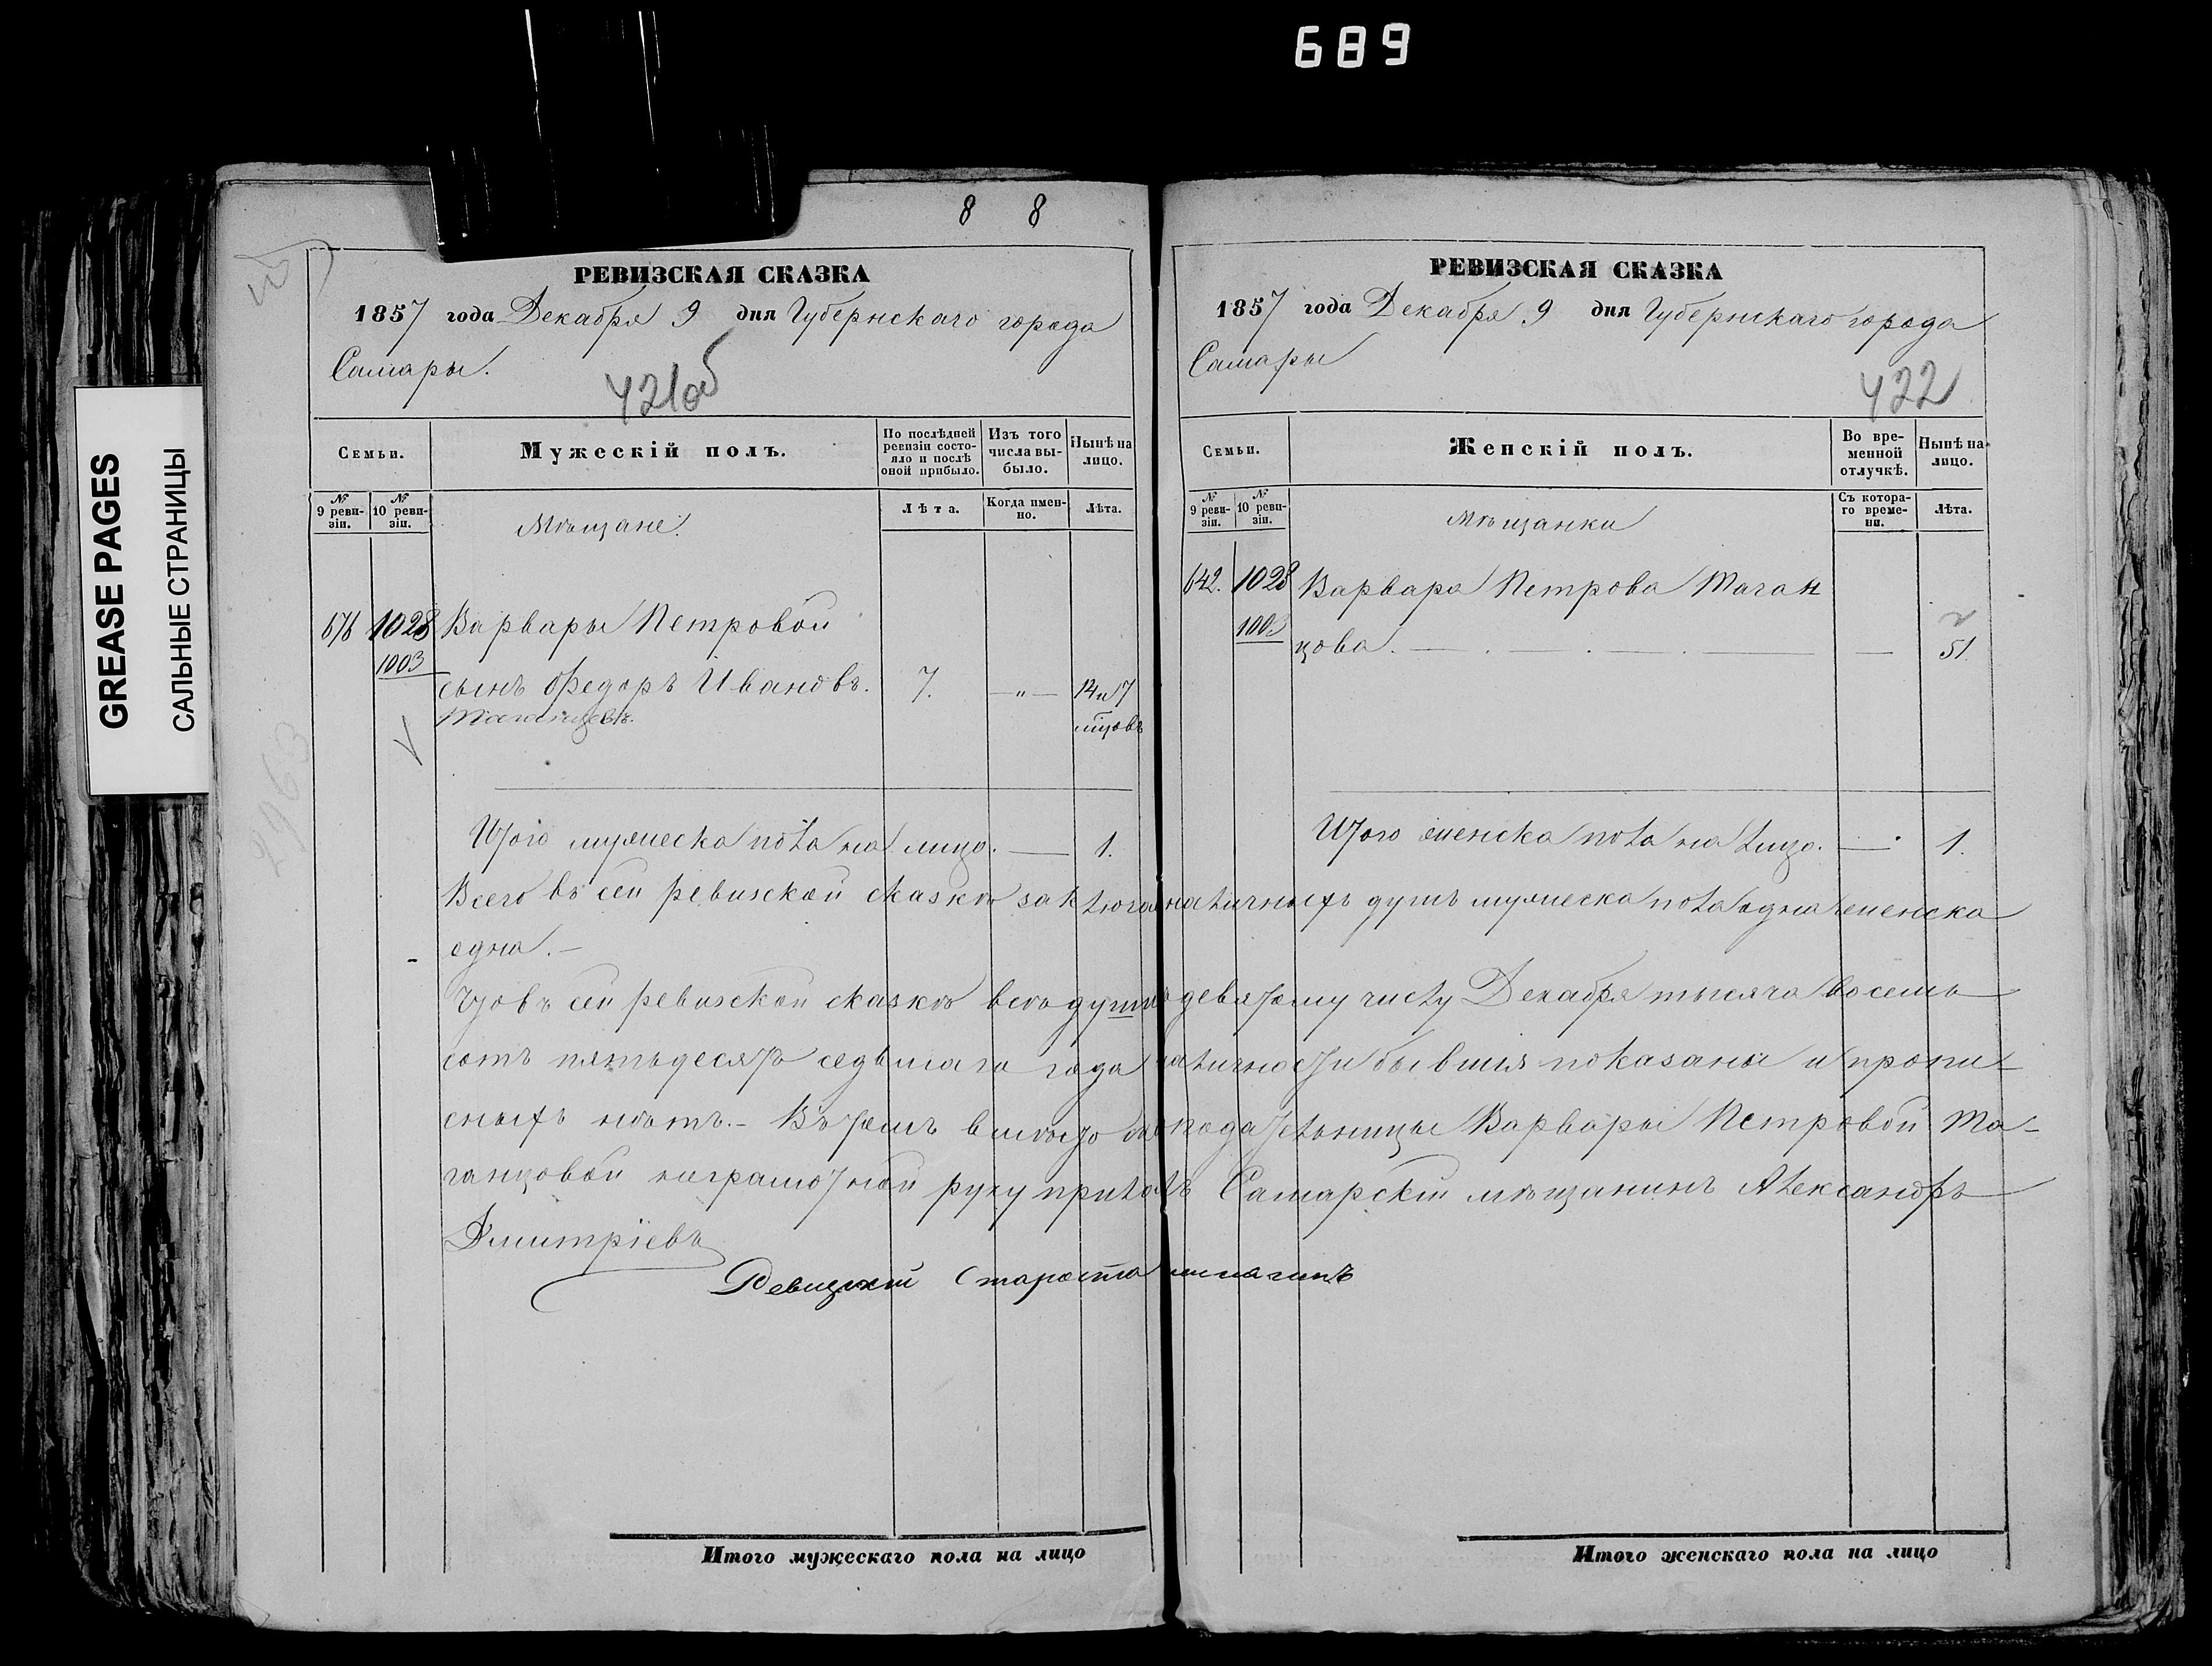 689
GREASE PAGES
САЛЬНЫЕ СТРАНИЦЫ
8 8
РЕВИЗСКАЯ СКАЗКА
1857 года Декабря 9 дня Губернскаго города
Самары.
421об
Семьи.
Мужескій полъ.
По послѣдней ревизіи состояло и послѣ оной прибыло.
Изъ того числа выбыло.
Нынѣ на лицо.
№ 9 ревизіи.
№ 10 ревизіи.
Мѣщане.
Лѣта.
Когда именно.
Лѣта.
676 1028 Варвары Петровой
1003
сынъ Ѳедоръ Ивановъ. 7. —„— 14 и 7
Таганцевъ. мцовъ
Итого мужеска пола на лицо. — 1.
РЕВИЗСКАЯ СКАЗКА
1857 года Декабря 9 дня Губернскаго города
Самары
422
Семьи.
Женскій полъ.
Во временной отлучкѣ.
Нынѣ на лицо.
№ 9 ревизіи.
№ 10 ревизіи.
Мѣщанки
Съ котораго времени.
Лѣта.
642. 1028 Варвара Петрова Таган
1003
цова. — . — . — . — — 51.
Итого женска пола на лицо. — 1.
Всего въ сей ревизской сказкѣ заключа наличныхъ душъ мужеска пола одна женска
одна. —
Что въ сей ревизской сказкѣ всѣ души девятому числу Декабря тысяча восемь
сотъ пятьдесятъ седьмаго года наличности бывшія показаны и пропи-
сныхъ нѣтъ. – Въ томъ вмѣсто подательницы Варвары Петровой Та-
ганцовой неграмотной руку приложилъ Самарскій мѣщанинъ Александръ
Дмитріевъ
Ревизскій Староста
Итого мужескаго пола на лицо
Итого женскаго пола на лицо